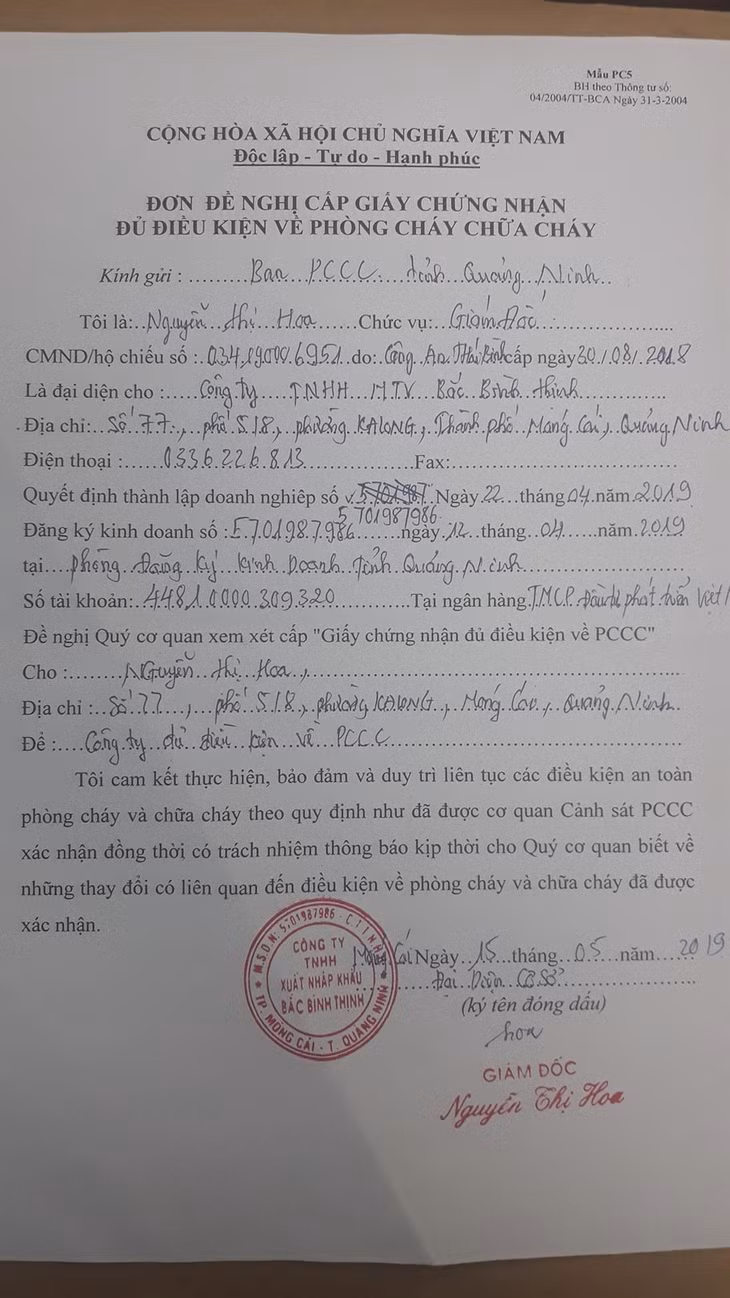 Mẫu PC5
BH theo Thông tư số:
04/2004/TT-BCA Ngày 31-3-2004
CỘNG HÒA XÃ HỘI CHỦ NGHĨA VIỆT NAM
Độc lập - Tự do - Hạnh phúc
ĐƠN ĐỀ NGHỊ CẤP GIẤY CHỨNG NHẬN
ĐỦ ĐIỀU KIỆN VỀ PHÒNG CHÁY CHỮA CHÁY
Kính gửi : Ban PCCC tỉnh Quảng Ninh
Tôi là: Nguyễn thị Hoa Chức vụ: Giám Đốc
CMND/hộ chiếu số : 034190006951 do: Công An Thái Bình cấp ngày 30/08/2018
Là đại diện cho : Công ty TNHH MTV Bắc Bình thịnh
Địa chỉ: Số 77, phố 518, phường KALONG, Thành phố Móng Cái, Quảng Ninh
Điện thoại : 0336.226.813 Fax:
Quyết định thành lập doanh nghiêp số 5701987 Ngày 22 tháng 04 năm 2019
5701987986
Đăng ký kinh doanh số : 5701987986 ngày 12 tháng 04 năm 2019
tại phòng Đăng ký kinh Doanh tỉnh Quảng Ninh
Số tài khoản: 44810000309320 Tại ngân hàng TMCP Đầu tư phát triển Việt
Đề nghị Quý cơ quan xem xét cấp "Giấy chứng nhận đủ điều kiện về PCCC"
Cho : NGuyễn thị Hoa,
Địa chỉ : Số 77, phố 518, phường KALONG, Móng Cái, Quảng Ninh
Để : Công ty đủ điều kiện về PCCC
Tôi cam kết thực hiện, bảo đảm và duy trì liên tục các điều kiện an toàn
phòng cháy và chữa cháy theo quy định như đã được cơ quan Cảnh sát PCCC
xác nhận đồng thời có trách nhiệm thông báo kịp thời cho Quý cơ quan biết về
những thay đổi có liên quan đến điều kiện về phòng cháy và chữa cháy đã được
xác nhận.
Móng Cái Ngày 15 tháng 05 năm 2019
Đại Diện Cơ Sở
(ký tên đóng dấu)
hoa
GIÁM ĐỐC
Nguyễn Thị Hoa
M.S.D.N: 5701987986 - C.T.T.N.H.H
CÔNG TY
TNHH
XUẤT NHẬP KHẨU
BẮC BÌNH THỊNH
TP. MÓNG CÁI - T. QUẢNG NINH